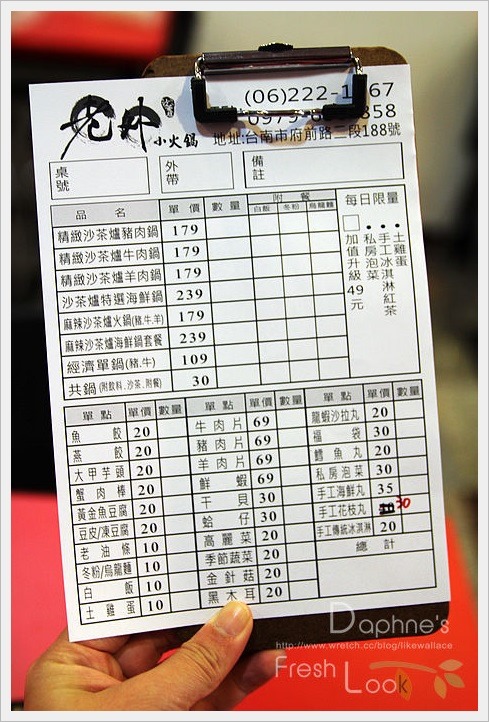 老井 小火鍋
(06)222-1 67
0979-6 858
地址:台南市府前路二段188號
桌號 外帶 備註
品名 單價 數量 附餐 白飯 冬粉 烏龍麵
精緻沙茶爐豬肉鍋 179
精緻沙茶爐牛肉鍋 179
精緻沙茶爐羊肉鍋 179
沙茶爐特選海鮮鍋 239
麻辣沙茶爐火鍋(豬.牛.羊) 179
麻辣沙茶爐海鮮鍋套餐 239
經濟單鍋(豬.牛) 109
共鍋(附飲料、沙茶、附餐) 30
每日限量
•土雞蛋
•手工冰淇淋紅茶
•私房泡菜
□加值升級49元
單點 單價 數量
魚餃 20
燕餃 20
大甲芋頭 20
蟹肉棒 20
黃金魚豆腐 20
豆皮/凍豆腐 20
老油條 10
冬粉/烏龍麵 10
白飯 10
土雞蛋 10
單點 單價 數量
牛肉片 69
豬肉片 69
羊肉片 69
鮮蝦 69
干貝 30
蛤仔 30
高麗菜 20
季節蔬菜 20
金針菇 20
黑木耳 20
單點 單價 數量
龍蝦沙拉丸 20
福袋 30
鱈魚丸 20
私房泡菜 30
手工海鮮丸 35
手工花枝丸 30
手工傳統冰淇淋 20
總計
Daphne's
http://www.wretch.cc/blog/likewallace
Fresh Look